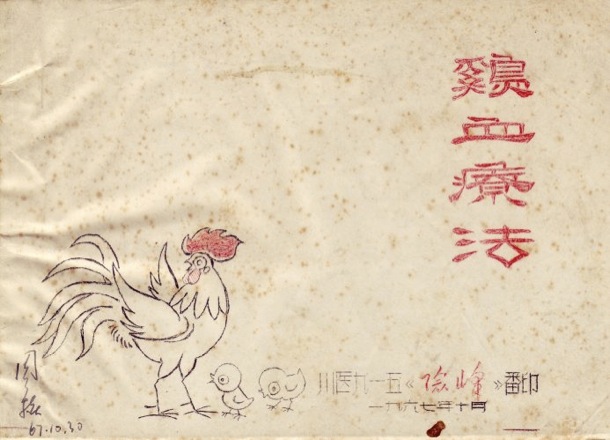 鷄血療法
川医九一五《险峰》番印
一九六七年十月
周
67.10.30